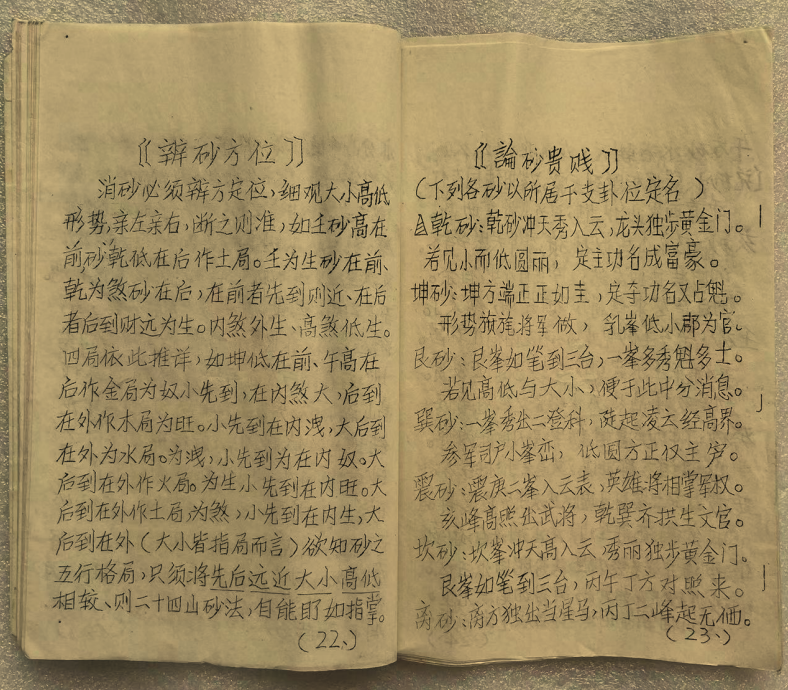 〖辨砂方位〗
消砂必须辨方定位，细观大小高低
形势，亲左亲右，断之则准，如壬砂高在
前砂乾低在后作土局。壬为生砂在前、
乾为煞砂在后，在前者先到则近、在后
者后到则远为生。内煞外生、高煞低生。
四局依此推详，如坤低在前、午高在
后作金局为奴小先到，在内煞大，后到
在外作木局为旺。小先到在内洩，大后到
在外为水局。为洩，小先到为在内奴。大
后到在外作火局。为生小先到在内旺。大
后到在外作土局，为煞，小先到在内生，大
后到在外（大小皆指局而言）欲知砂之
五行格局，只须将先后远近大小高低
相较、则二十四山砂法，自能盯如指掌。
（22、）
〖論砂贵贱〗
（下列各砂以所居干支卦位定名）
乾砂：乾砂冲天秀入云，龙头独步黄金门。
若见小而低圆丽，定主功名成富豪。
坤砂：坤方端正正如圭，定夺功名又占魁。
形势旗旄将军做，乳峯低小郡为官。
艮砂：艮峯如笔到三台，一峯多秀魁多士。
若见高低与大小，便于此中分消息。
巽砂：一峯秀出二登科，陡起凌云经高界。
参军司户小峯峦，低圆方正仅主
震砂：震庚二峯入云表，英雄将相掌军权。
亥峰高照出武将，乾巽齐拱生文官。
坎砂：坎峯冲天高入云，秀丽独步黄金门。
艮峯如笔到三台，丙午丁方对照来。
离砂：离方独出当星马，丙丁二峰起无
（23、）